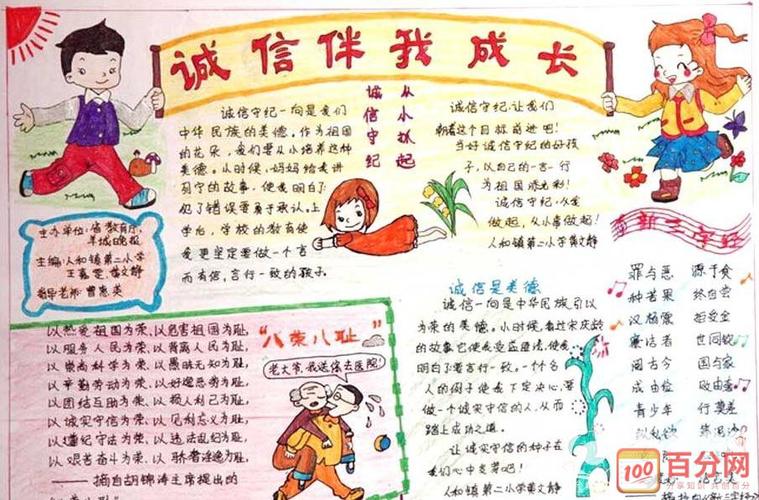 诚信伴我成长
从小抓起
诚信守纪
诚信守纪一向是我们
中华民族的美德,作为祖国
的花朵,我们要从小培养这种
美德。小时候,妈妈给我讲
列宁的故事,使我明白了
犯了错误要勇于承认。上
学后,学校的教育使
我更坚定要做一个言
而有信,言行一致的孩子。
诚信守纪,让我们
朝着这个目标前进吧!
当好诚信守纪的好孩
子,以自己的一言一行
为祖国添光彩!
诚信守纪,从我
做起,从小事做起!
人和镇第二小学黄文静
主办单位:省教育厅、
羊城晚报
主编:人和镇第二小学
指导老师:曾惠英
“八荣八耻”
以热爱祖国为荣、以危害祖国为耻,
以服务人民为荣、以背离人民为耻,
以崇尚科学为荣、以愚昧无知为耻,
以辛勤劳动为荣、以好逸恶劳为耻,
以团结互助为荣、以损人利己为耻,
以诚实守信为荣、以见利忘义为耻,
以遵纪守法为荣、以违法乱纪为耻,
以艰苦奋斗为荣、以骄奢淫逸为耻。
——摘自胡锦涛主席提出的
老大爷,我送您去医院!
诚信是美德
诚信一向是中华民族引以
为荣的美德。小时候,看过宋庆龄
的故事它使我受益匪浅,使我
明白了要言行一致。一个个名
人的例子使我下定决心,要
做一个诚实守信的人,从而
踏上成功之道。
让诚实守信的种子在
我们心中发芽吧!
人和镇第二小学
罪与恶 源于贪
种若果 终自尝
廉洁者 世同钦
阅古今 国与家
成由俭 败由奢
青少年 行莫差
100 百分网